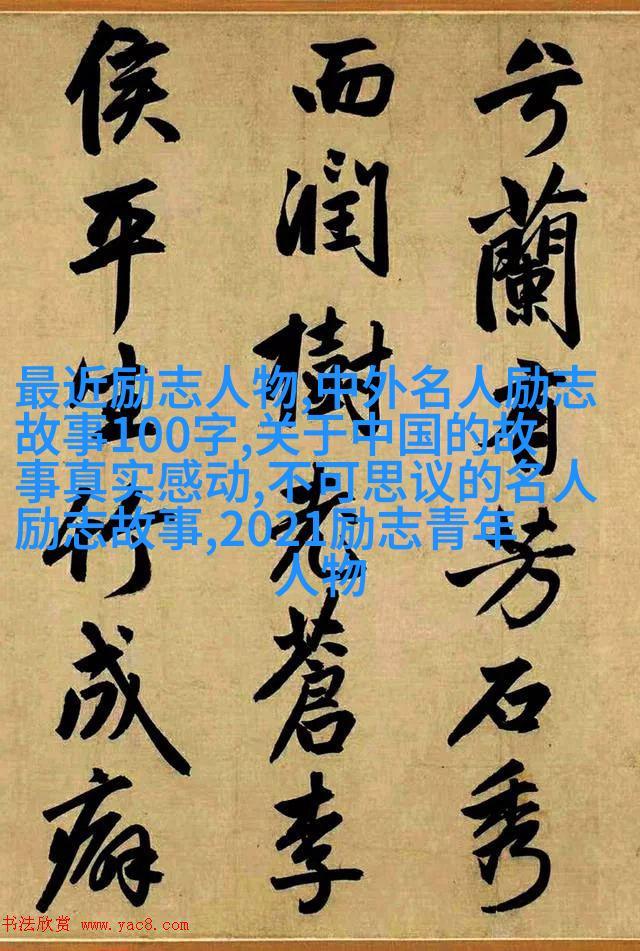 兮蘭有芳石秀
而潤樹老蒼李
侯平生竹成癖
最近励志人物,中外名人励志
故事100字,关于中国的故
事真实感动,不可思议的名人
励志故事,2021励志青年
人物
书法欣赏 www.yac8.com